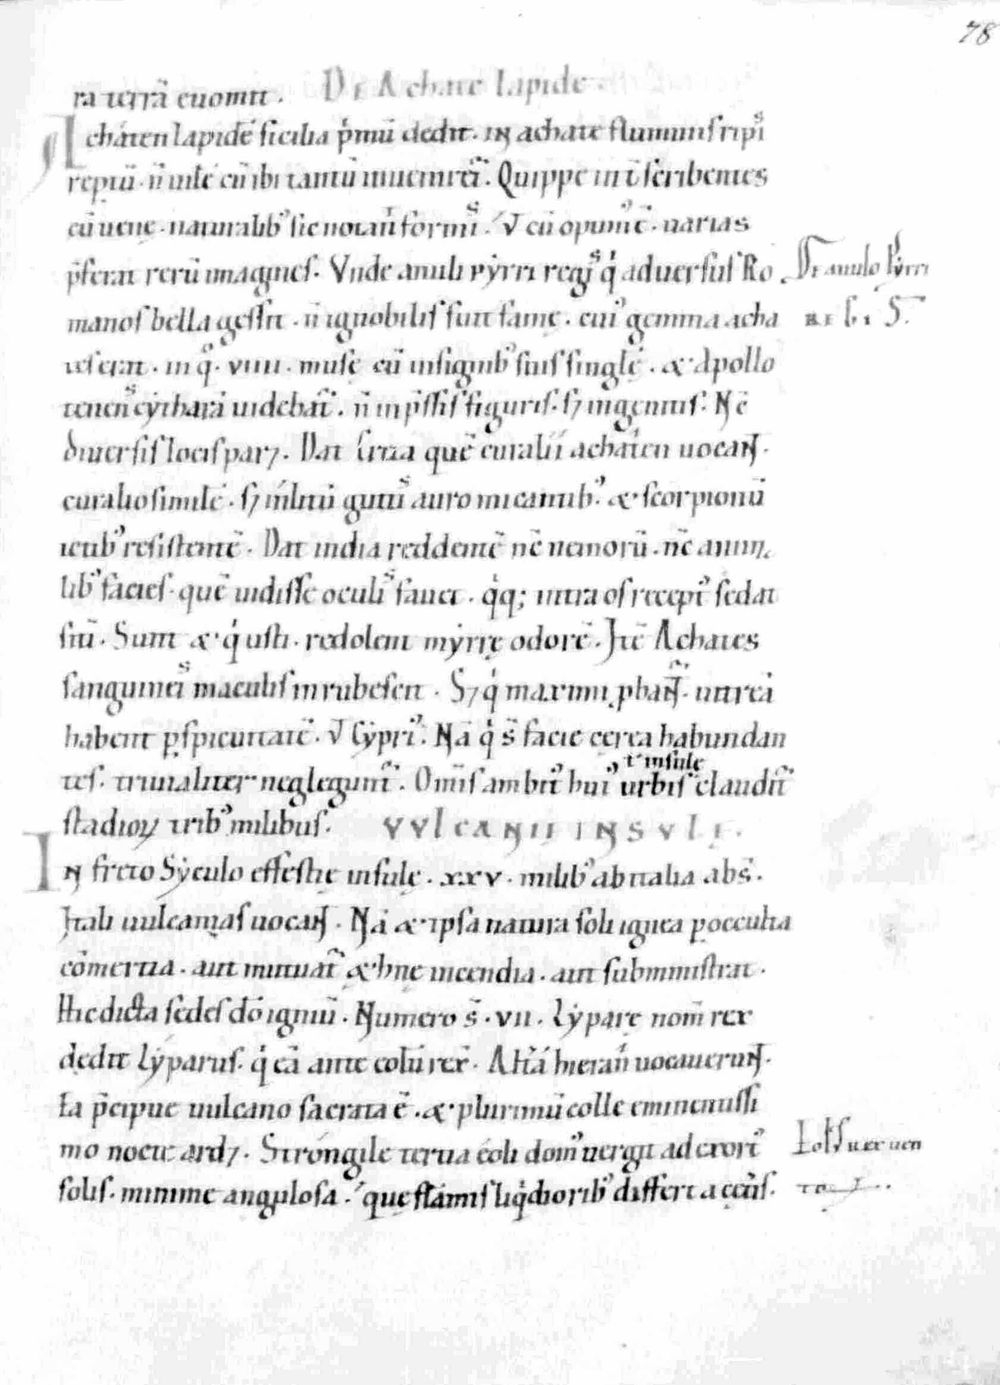 78
ra terrā euomit. DE Achate lapide.
Achaten lapidē sicilia p̄mū dedit. in achate fluminis ripis
reptū. n̄ uilē cū ibi tantū inueniret᷒. Quippe int̄ scribentes
eū uenę. naturalib᷒ sic notant formis. Vt cū optim᷒ ē. uarias
p̄ferat rerū imagines. Vnde anuli pẏrri regis q̇ aduersus Ro
De anulo Pẏrri
manos bella gessit. n̄ ignobilis fuit famę. cui᷒ gemma acha
REGIS.
tes erat. in q̊. viiii. musę cū insignib᷒ suis singlę. & Apollo
tenens cẏtharā uidebat᷒. n̄ inp̄ssis figuris. s; ingenitis. Nē
diuersis locis par&. Dat creta quē curaliū achaten uocant.
curalio similē. s; inlitū guttis auro micantib᷒. & scorpionū
ictib᷒ resistentē. Dat india reddentē nē nemorū. nē anima
lib᷒ facies. quē uidisse oculis fauet. q̇q; intra os recept᷒ sedat
sitī. Sunt & q̇ usti. redolent mẏrrę odorē. Itē Achates
sanguineis maculis inrubescit. S; q̇ maximi phant᷒. uitreā
habent p̱spicuitatē. Vt Cẏpri᷒. Nā q̇ s̄ facie cerea habundan
tes. triuialiter neglegunt᷒. Om̄is ambit᷒ hui᷒ urbis claudit᷒
ł insulę
stadioꝝ trib᷒ milibus. VVLCANIĘ INSVLE.
In freto Sẏculo effestię insulę. xxv. milib᷒ ab italia abs̄.
Itali uulcanias uocant. Nā & ipsa natura soli ignea p̱ occulta
cōmertia. aut mutuat᷒ &hnę incendia. aut subministrat.
Hic dicta sedes dō igniū. Numero s̄. vii. Lẏparę nom̄ rex
dedit Lẏparus. q̇ eā ante eolū rex̄. Altā hieran̄ uocauerunt.
Ea p̄cipue uulcano sacrata ē. & plurimū colle eminentissi
mo nocte ard&. Strongile tertia eoli dom᷒ uergit ad exort᷒
Eolus rex uen
solis. minime angulosa. quę flāmis liq̇dioribus differt a cetis.
torū